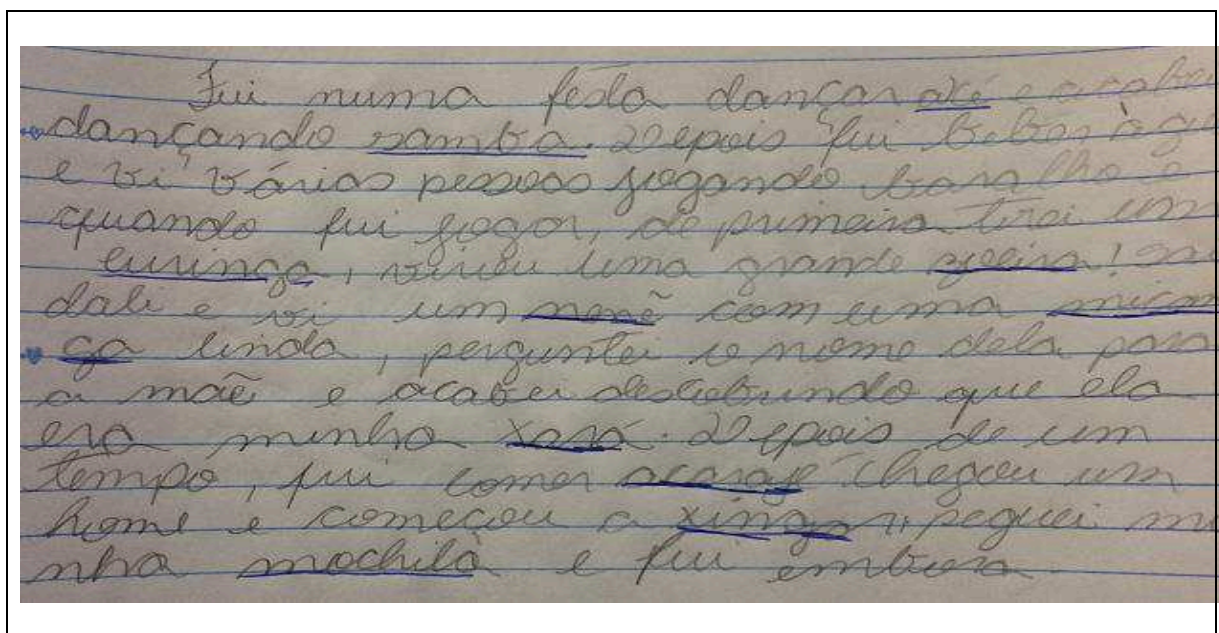 Fui numa festa dançar axé e acabei
dançando samba. Depois fui beber água
e vi várias pessoas jogando baralho e
quando fui jogar, de primeira tirei um
curinga, virou uma grande zoeira! Saí
dali e vi um nenê com uma miçan
ga linda, perguntei o nome dela para
a mãe e acabei descobrindo que ela
era minha xará. Depois de um
tempo, fui comer acarajé chegou um
home e começou a xingar, peguei mi
nha mochila e fui embora.